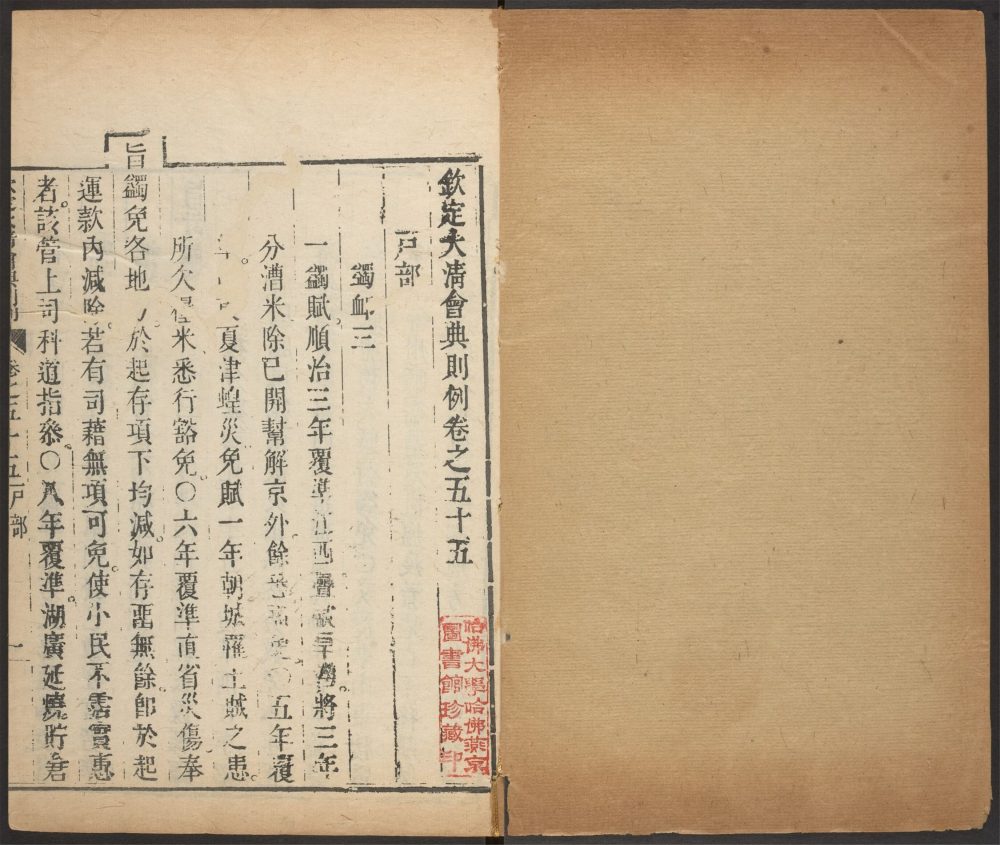 欽定大清會典則例卷之五十五
哈佛大學哈佛燕京
圖書館珍藏印
戶部
蠲卹三
一蠲賦順治三年覆準江西 旱 將三年
分漕米除已開幫解京外餘 五年覆
夏津蝗災免賦一年朝城罹土賊之患
所欠 米悉行豁免〇六年覆準直省災傷奉
旨蠲免各地 於起存項下均減如存畱無餘卽於起
運款內減除若有司藉無項可免使小民不霑實惠
者該管上司科道指參〇八年覆準湖廣延燒貯倉
卷之五十五戶部 一